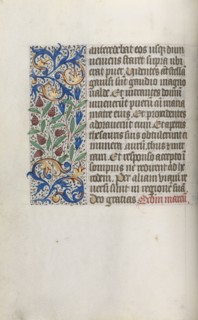 antecedebat eos usq; dum
veniens staret supra ubi
erat puer. Videntes aut stella
gavisi sunt gaudio magno
valde. Et intrantes domum
invenerunt puerum cum maria
matre eius. Et procidentes
adoraverunt eum. Et apertis
thesauris suis obtulerunt ei
munera. aurum. thus. et mir
ram. Et responso accepto i
sompnis ne redirent ad he
rodem. Per aliam viam re
versi sunt in regione sua.
Deo gratias.